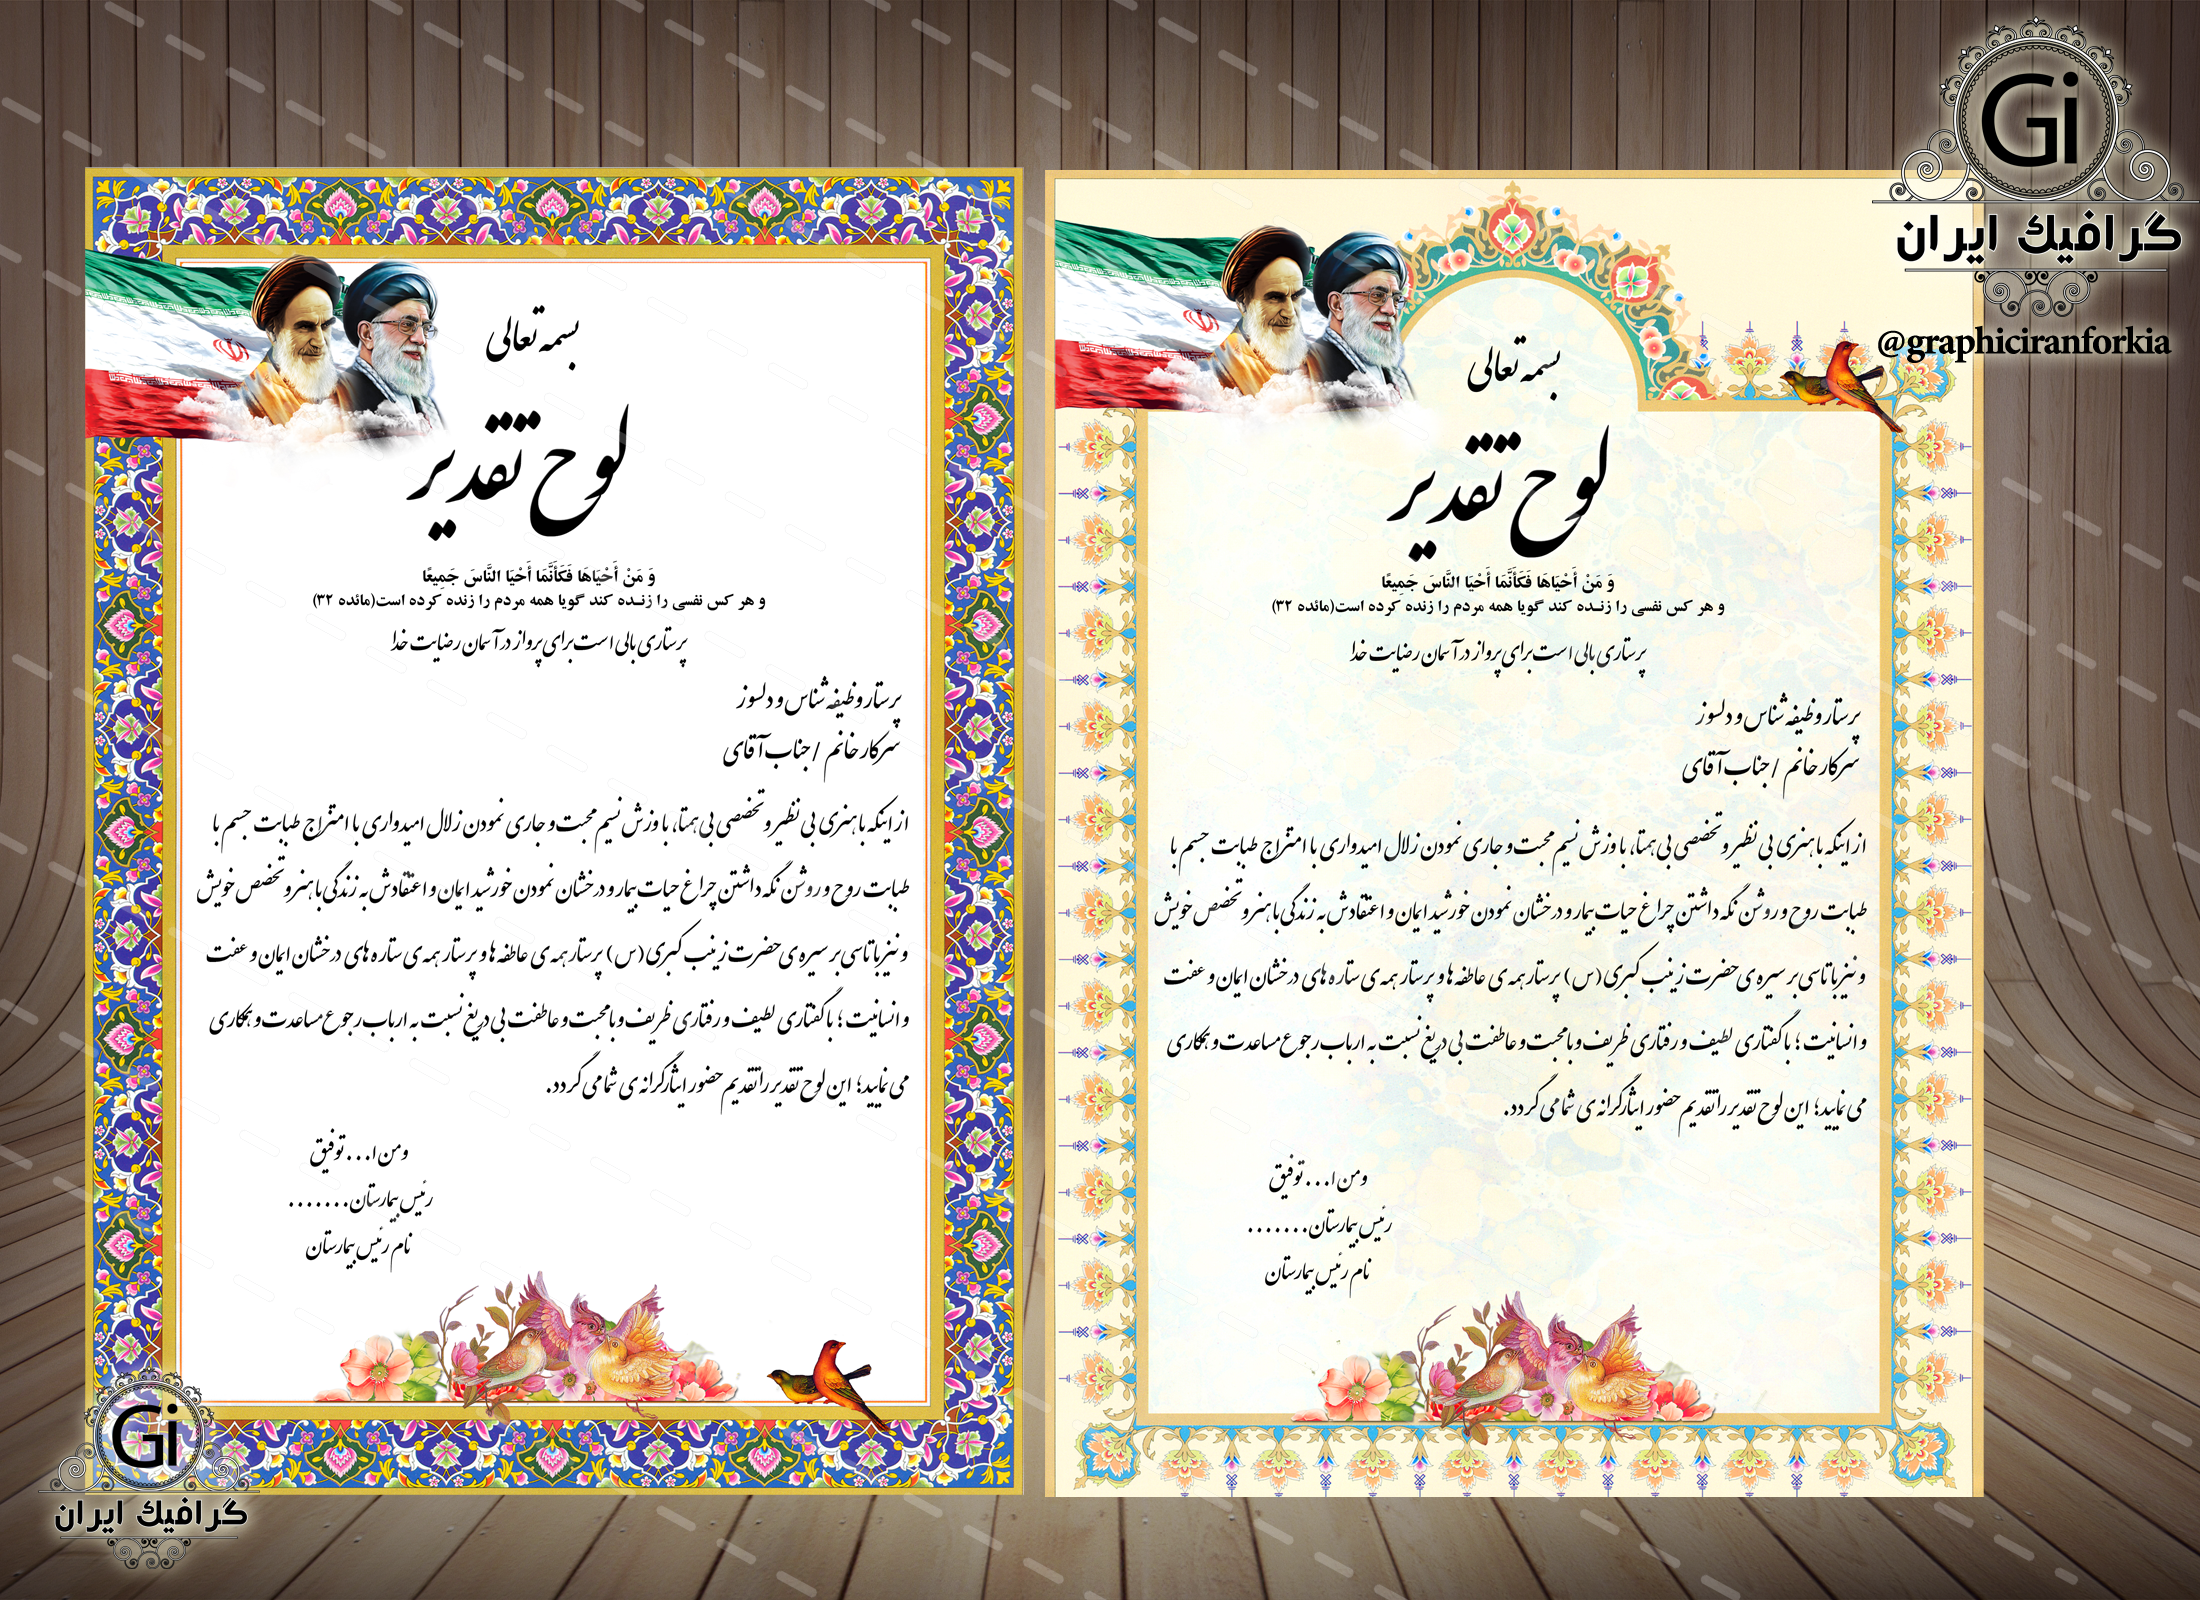 بسمه تعالی
لوح تقدیر
وَ مَنْ أَحْيَاهَا فَكَأَنَّمَا أَحْيَا النَّاسَ جَمِيعًا
و هر کس نفسی را زنـده کند گویا همه مردم را زنده کرده است(مائده ۳۲)
پرستاری بالی است برای پرواز در آسمان رضایت خدا
پرستار وظیفه شناس و دلسوز
سرکار خانم / جناب آقای
از اینکه با هنری بی نظیر و تخصصی بی همتا، با وزش نسیم محبت و جاری نمودن زلال امیدواری با امتزاج طبابت جسم با
طبابت روح و روشن نگه داشتن چراغ حیات بیمار و درخشان نمودن خورشید ایمان و اعتقادش به زندگی با هنر و تخصص خویش
و نیز با تاسی بر سیره ی حضرت زینب کبری (س) پرستار همه ی عاطفه ها و پرستار همه ی ستاره های درخشان ایمان و عفت
و انسانیت ؛ با گفتاری لطیف و رفتاری ظریف و با محبت و عاطفت بی دریغ نسبت به ارباب رجوع مساعدت و همکاری
می نمایید؛ این لوح تقدیر را تقدیم حضور ایثارگرانه ی شما می گردد.
ومن ا... توفیق
رئیس بیمارستان.......
نام رئیس بیمارستان
Gi
گرافیك ایران
بسمه تعالی
لوح تقدیر
وَ مَنْ أَحْيَاهَا فَكَأَنَّمَا أَحْيَا النَّاسَ جَمِيعًا
و هر کس نفسی را زنـده کند گویا همه مردم را زنده کرده است(مائده ۳۲)
پرستاری بالی است برای پرواز در آسمان رضایت خدا
پرستار وظیفه شناس و دلسوز
سرکار خانم / جناب آقای
از اینکه با هنری بی نظیر و تخصصی بی همتا، با وزش نسیم محبت و جاری نمودن زلال امیدواری با امتزاج طبابت جسم با
طبابت روح و روشن نگه داشتن چراغ حیات بیمار و درخشان نمودن خورشید ایمان و اعتقادش به زندگی با هنر و تخصص خویش
و نیز با تاسی بر سیره ی حضرت زینب کبری (س) پرستار همه ی عاطفه ها و پرستار همه ی ستاره های درخشان ایمان و عفت
و انسانیت ؛ با گفتاری لطیف و رفتاری ظریف و با محبت و عاطفت بی دریغ نسبت به ارباب رجوع مساعدت و همکاری
می نمایید؛ این لوح تقدیر را تقدیم حضور ایثارگرانه ی شما می گردد.
ومن ا... توفیق
رئیس بیمارستان.......
نام رئیس بیمارستان
Gi
گرافیك ایران
@graphiciranforkia